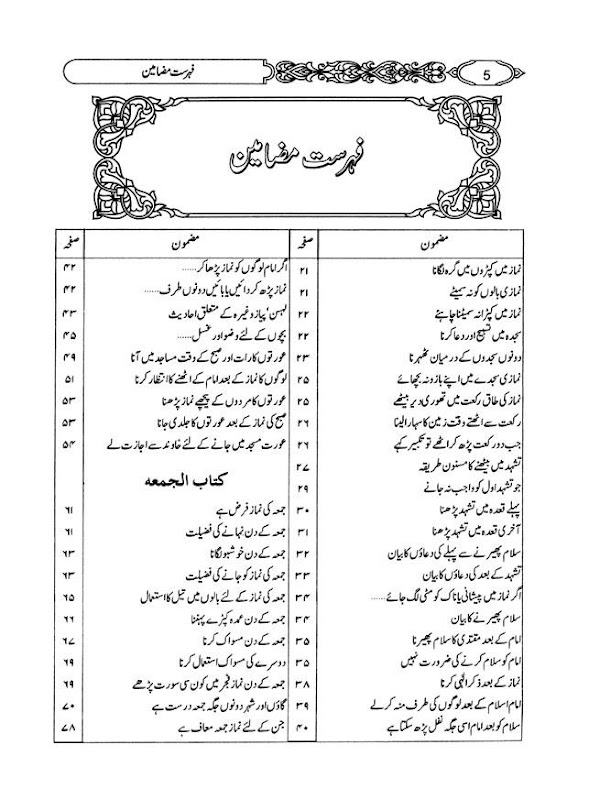 5
فہرست مضامین
فہرست مضامین
مضمون صفحہ
نماز میں کپڑوں میں گرہ لگانا ۲۱
نمازی بالوں کو نہ سمیٹے ۲۱
نماز میں کپڑا نہ سمیٹنا چاہئے ۲۲
سجدہ میں تسبیح اور دعا کرنا ۲۲
دونوں سجدوں کے درمیان ٹھہرنا ۲۳
نمازی سجدے میں اپنے بازو نہ بچھائے ۲۵
نماز کی طاق رکعت میں تھوڑی دیر بیٹھے ۲۵
رکعت سے اٹھتے وقت زمین کا سہارا لینا ۲۶
جب دو رکعت پڑھ کر اٹھے تو تکبیر کہے ۲۶
تشہد میں بیٹھنے کا مسنون طریقہ ۲۷
جو تشہد اول کو واجب نہ جانے ۲۹
پہلے قعدہ میں تشہد پڑھنا ۳۰
آخری قعدہ میں تشہد پڑھنا ۳۱
سلام پھیرنے سے پہلے کی دعاؤں کا بیان ۳۲
تشہد کے بعد کی دعاؤں کا بیان ۳۳
اگر نماز میں پیشانی یا ناک کو مٹی لگ جائے...... ۳۴
سلام پھیرنے کا بیان ۳۴
امام کے بعد مقتدی کا سلام پھیرنا ۳۵
امام کو سلام کرنے کی ضرورت نہیں ۳۵
نماز کے بعد ذکر الٰہی کرنا ۳۸
امام سلام کے بعد لوگوں کی طرف منہ کر لے ۳۹
سلام کو بعد امام اسی جگہ نفل پڑھ سکتا ہے ۴۰
مضمون صفحہ
اگر امام لوگوں کو نماز پڑھا کر...... ۴۲
نماز پڑھ کر دائیں یا بائیں دونوں طرف...... ۴۲
لہسن' پیاز وغیرہ کے متعلق احادیث ۴۳
بچوں کے لئے وضو اور غسل...... ۴۵
عورتوں کا رات اور صبح کے وقت مساجد میں آنا ۴۹
لوگوں کا نماز کے بعد امام کے اٹھنے کا انتظار کرنا ۵۱
عورتوں کا مردوں کے پیچھے نماز پڑھنا ۵۳
صبح کی نماز کے بعد عورتوں کا جلدی جانا ۵۳
عورت مسجد میں جانے کے لئے خاوند سے اجازت لے ۵۴
کتاب الجمعه
جمعہ کی نماز فرض ہے ۶۱
جمعہ کے دن نہانے کی فضیلت ۶۱
جمعہ کے دن خوشبو لگانا ۶۳
جمعہ کی نماز کو جانے کی فضیلت ۶۳
جمعہ کی نماز کے لئے بالوں میں تیل کا استعمال ۶۵
جمعہ کے دن عمدہ کپڑے پہننا ۶۶
جمعہ کے دن مسواک کرنا ۶۷
دوسرے کی مسواک استعمال کرنا ۶۹
جمعہ کے دن نماز فجر میں کون سی سورت پڑھے ۶۹
گاؤں اور شہر دونوں جگہ جمعہ درست ہے ۷۰
جن کے لئے نماز جمعہ معاف ہے ۷۸